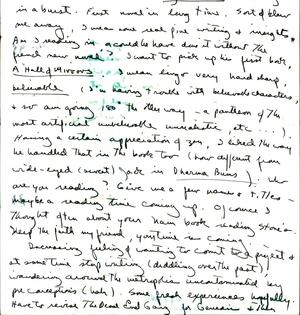 in a burst. First novel in long time. Sort of blew
me away, I mean some real fine writing & insights.
Am I reading in, a could he have done it without the
french new novel. I want to pick up his first book,
A Hall of Mirrors. I mean lingo very hard sharp,
believable (I'm having trouble with believable characters
& so am going the other way - a pantheon of the
most artificial unbelievable unrealistic etc ...).
Having a certain appreciation of zen, I liked the way
he handled that in the book too (how different from
wide-eyed (sweet) Jack in Dharma Bums). Who
are you reading? Give me a few names & titles -
maybe a reading time coming up. Of course I
thought often about your Nam book reading
Keep the faith my friend, your time is coming.
Decreasing feeling & wanting to commit to a project &
at same time stop writing (diddling over the past),
wandering around the metropolis uncontaminated by
pre conceptions (hah). Some fresh experiences hopefully.
Have to revise The Dead End Gang for